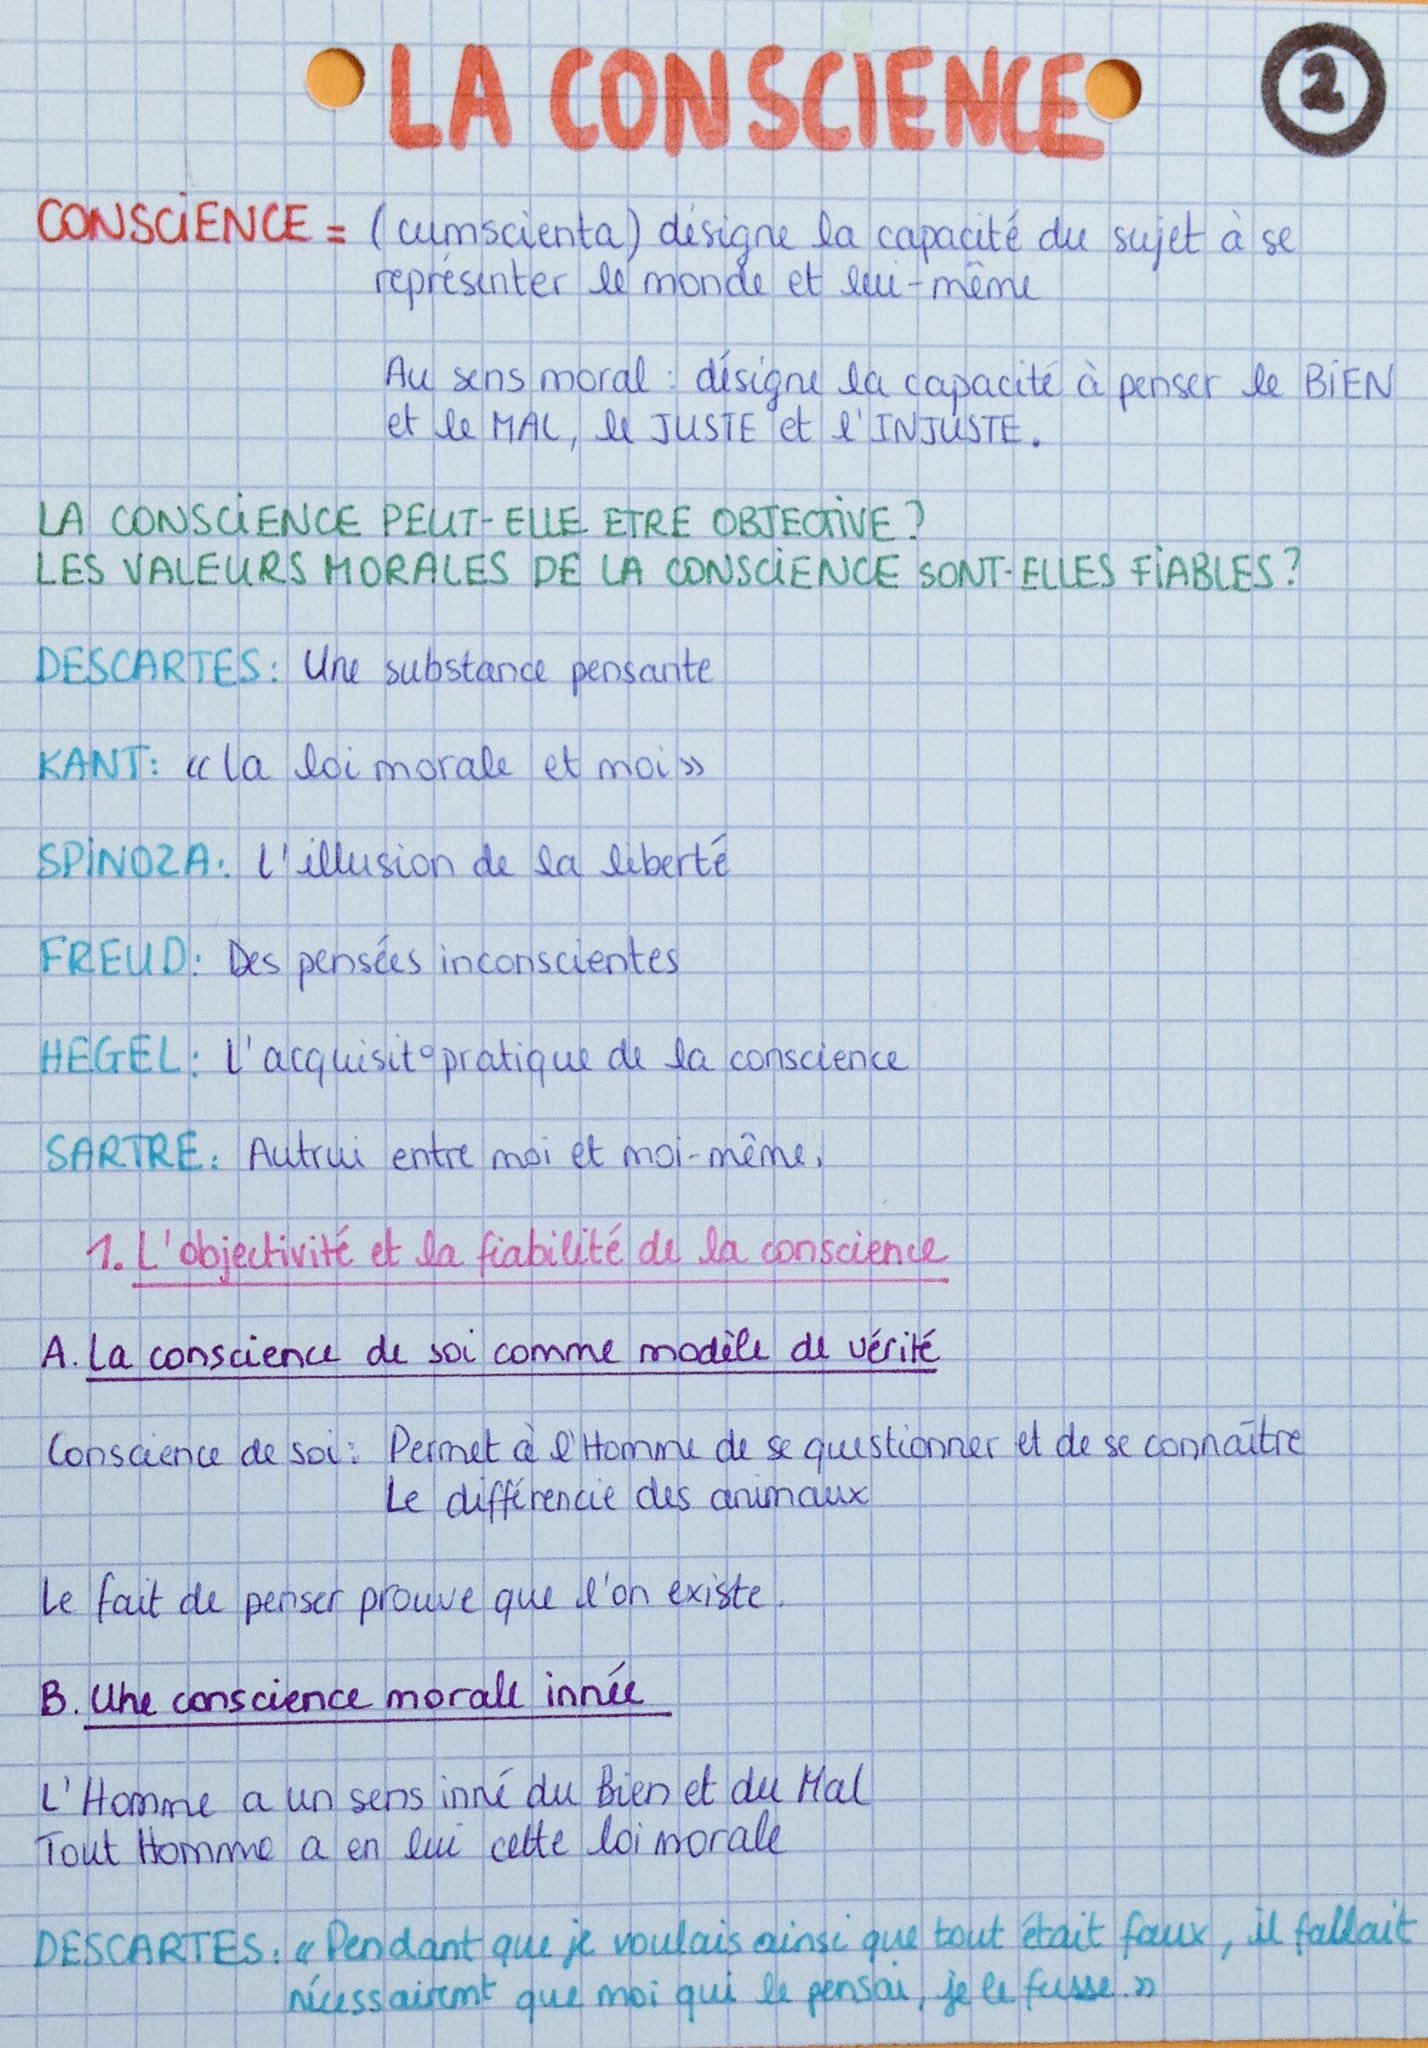 LA CONSCIENCE
2
CONSCIENCE = (cumscienta) désigne la capacité du sujet à se
représenter le monde et lui-même
Au sens moral : désigne la capacité à penser le BIEN
et le MAL, le JUSTE et l'INJUSTE.
LA CONSCIENCE PEUT-ELLE ETRE OBJECTIVE ?
LES VALEURS MORALES DE LA CONSCIENCE SONT-ELLES FIABLES ?
DESCARTES : Une substance pensante
KANT : « la loi morale et moi »
SPINOZA : L'illusion de la liberté
FREUD : Des pensées inconscientes
HEGEL : L'acquisit° pratique de la conscience
SARTRE : Autrui entre moi et moi-même.
1. L'objectivité et la fiabilité de la conscience
A. La conscience de soi comme modèle de vérité
Conscience de soi : Permet à l'Homme de se questionner et de se connaître
Le différencie des animaux
Le fait de penser prouve que l'on existe.
B. Une conscience morale innée
L'Homme a un sens inné du Bien et du Mal
Tout Homme a en lui cette loi morale
DESCARTES : « Pendant que je voulais ainsi que tout était faux, il fallait
nécessairemt que moi qui le pensai, je le fusse. »